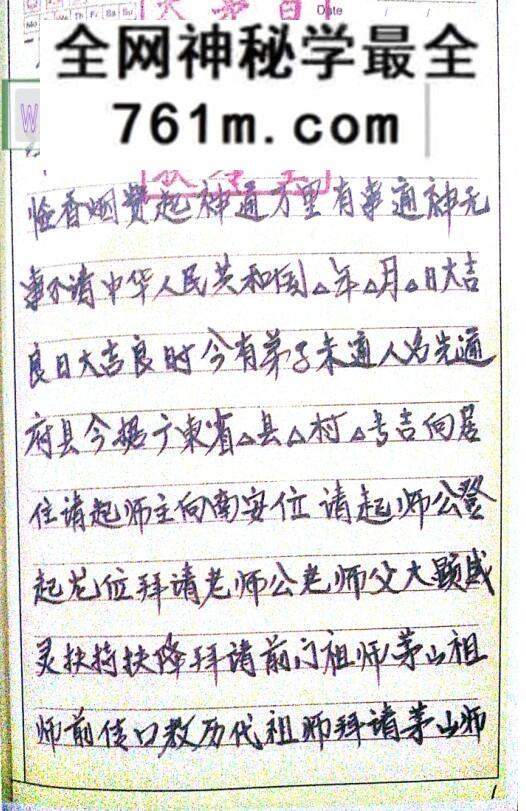 Date
Th Fr Sa Su
全网神秘学最全
761m.com
W
临香烟赞起神通万里有事通神无
事不请中华人民共和国△年△月△日大吉
良日大吉良时今有弟子未通人名先通
府县今据广东省△县△村△号吉向居
住请起师主向南安位请起师公登
起龙位拜请老师公老师父大显威
灵扶持扶降拜请前门祖师茅山祖
师前传口教历代祖师拜请茅山师
1